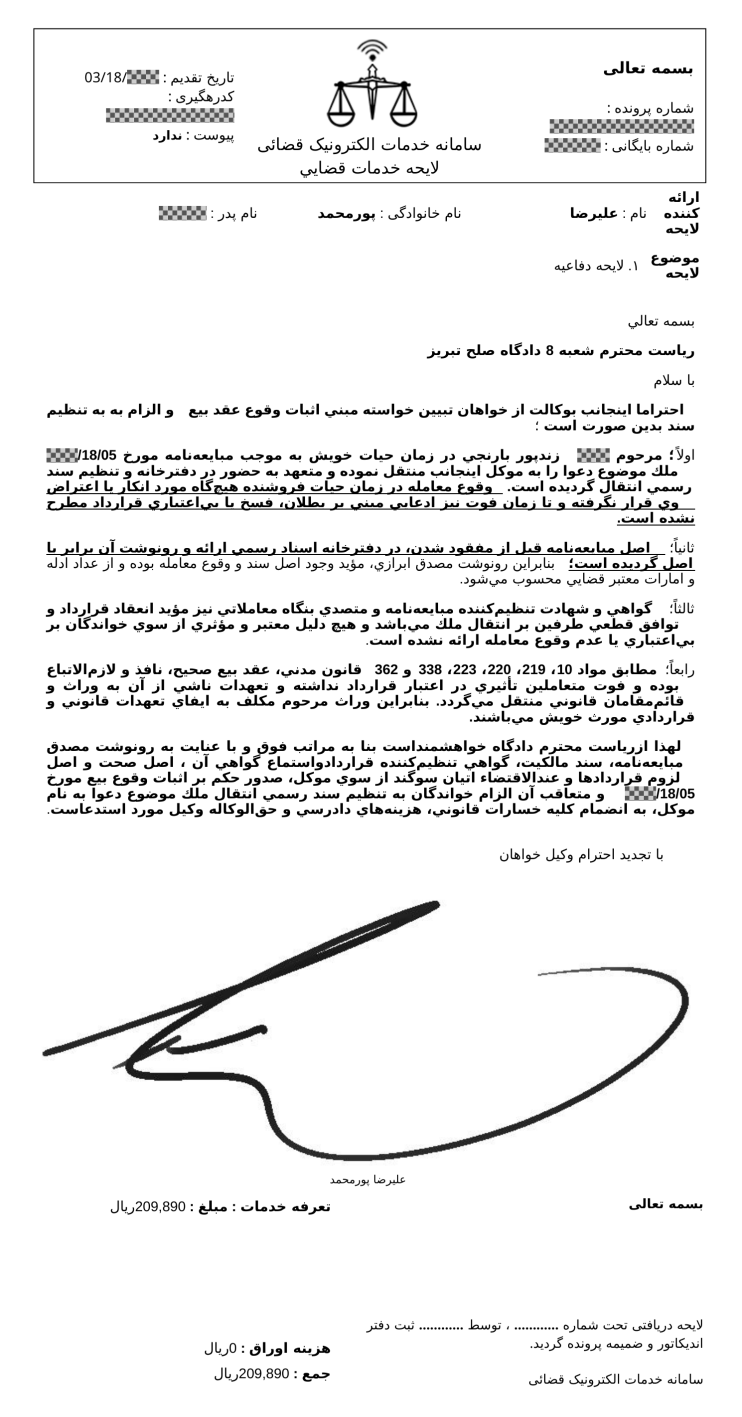 بسمه تعالی
شماره پرونده :
شماره بایگانی :
سامانه خدمات الکترونیک قضائی
لایحه خدمات قضايي
تاریخ تقدیم : /03/18
کدرهگیری :
پیوست : ندارد
ارائه کننده لایحه
نام : علیرضا
نام خانوادگی : پورمحمد
نام پدر :
موضوع لایحه
۱. لایحه دفاعیه
بسمه تعالي
ریاست محترم شعبه 8 دادگاه صلح تبریز
با سلام
احتراما اینجانب بوکالت از خواهان تبیین خواسته مبني اثبات وقوع عقد بیع و الزام به به تنظیم
سند بدین صورت است ؛
اولاً؛ مرحوم زندپور بارنجي در زمان حیات خویش به موجب مبایعه‌نامه مورخ 18/05/
ملك موضوع دعوا را به موکل اینجانب منتقل نموده و متعهد به حضور در دفترخانه و تنظیم سند
رسمي انتقال گردیده است. وقوع معامله در زمان حیات فروشنده هیچ‌گاه مورد انکار یا اعتراض
وي قرار نگرفته و تا زمان فوت نیز ادعایي مبني بر بطلان، فسخ یا بي‌اعتباري قرارداد مطرح
نشده است.
ثانیاً؛ اصل مبایعه‌نامه قبل از مفقود شدن، در دفترخانه اسناد رسمي ارائه و رونوشت آن برابر با
اصل گردیده است؛ بنابراین رونوشت مصدق ابرازي، مؤید وجود اصل سند و وقوع معامله بوده و از عداد ادله
و امارات معتبر قضایي محسوب مي‌شود.
ثالثاً؛ گواهي و شهادت تنظیم‌کننده مبایعه‌نامه و متصدي بنگاه معاملاتي نیز مؤید انعقاد قرارداد و
توافق قطعي طرفین بر انتقال ملك مي‌باشد و هیچ دلیل معتبر و مؤثري از سوي خواندگان بر
بي‌اعتباري یا عدم وقوع معامله ارائه نشده است.
رابعاً؛ مطابق مواد 10، 219، 220، 223، 338 و 362 قانون مدني، عقد بیع صحیح، نافذ و لازم‌الاتباع
بوده و فوت متعاملین تأثیري در اعتبار قرارداد نداشته و تعهدات ناشي از آن به وراث و
قائم‌مقامان قانوني منتقل مي‌گردد. بنابراین وراث مرحوم مکلف به ایفاي تعهدات قانوني و
قراردادي مورث خویش مي‌باشند.
لهذا ازریاست محترم دادگاه خواهشمنداست بنا به مراتب فوق و با عنایت به رونوشت مصدق
مبایعه‌نامه، سند مالکیت، گواهي تنظیم‌کننده قراردادواستماع گواهي آن ، اصل صحت و اصل
لزوم قراردادها و عندالاقتضاء اتیان سوگند از سوي موکل، صدور حکم بر اثبات وقوع بیع مورخ
18/05/ و متعاقب آن الزام خواندگان به تنظیم سند رسمي انتقال ملك موضوع دعوا به نام
موکل، به انضمام کلیه خسارات قانوني، هزینه‌هاي دادرسي و حق‌الوکاله وکیل مورد استدعاست.
با تجدید احترام وکیل خواهان
علیرضا پورمحمد
بسمه تعالی
تعرفه خدمات : مبلغ : 209,890ریال
لایحه دریافتی تحت شماره ............ ، توسط ............ ثبت دفتر
اندیکاتور و ضمیمه پرونده گردید.
هزینه اوراق : 0ریال
جمع : 209,890ریال
سامانه خدمات الکترونیک قضائی